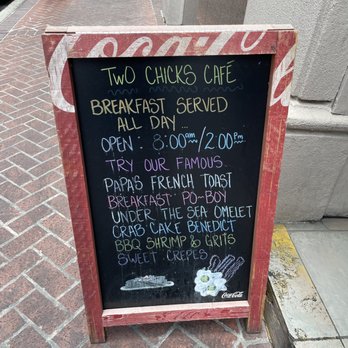 Coca-Cola
TWO CHICKS CAFÉ
BREAKFAST SERVED
ALL DAY...
OPEN: 8:00am/2:00pm
TRY OUR FAMOUS
PAPA'S FRENCH TOAST
BREAKFAST PO-BOY
UNDER THE SEA OMELET
CRAB CAKE BENEDICT
BBQ SHRIMP & GRITS
SWEET CREPES
Coca-Cola